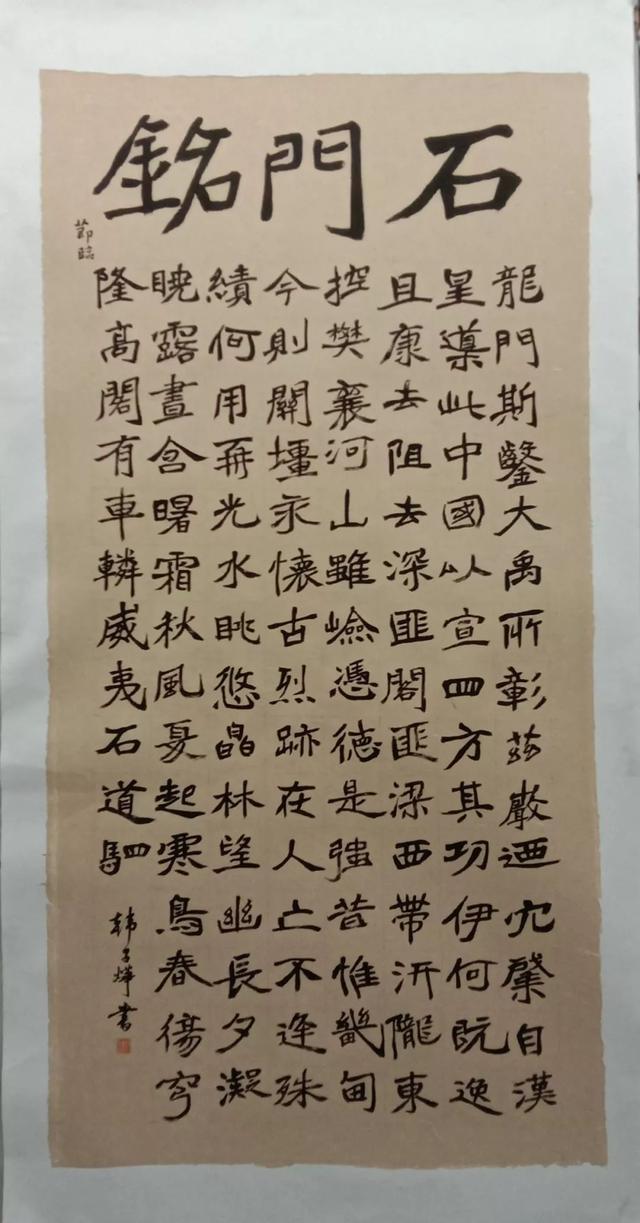 石門銘
節臨
龍門斯鑿大禹所彰茲巖迺穴肇自漢
皇導此中國以宣四方其功伊何既逸
且康去阻去深匪閣匪梁西帶汧隴東
控樊襄河山雖嶮憑德是強昔惟畿甸
今則關壃永懷古烈跡在人亡不逢殊
績何用再光水眺悠皛林望幽長夕凝
曉露晝含曙霜秋風夏起寒鳥春傷穹
隆高閣有車轔威夷石道駟
韩子燁書